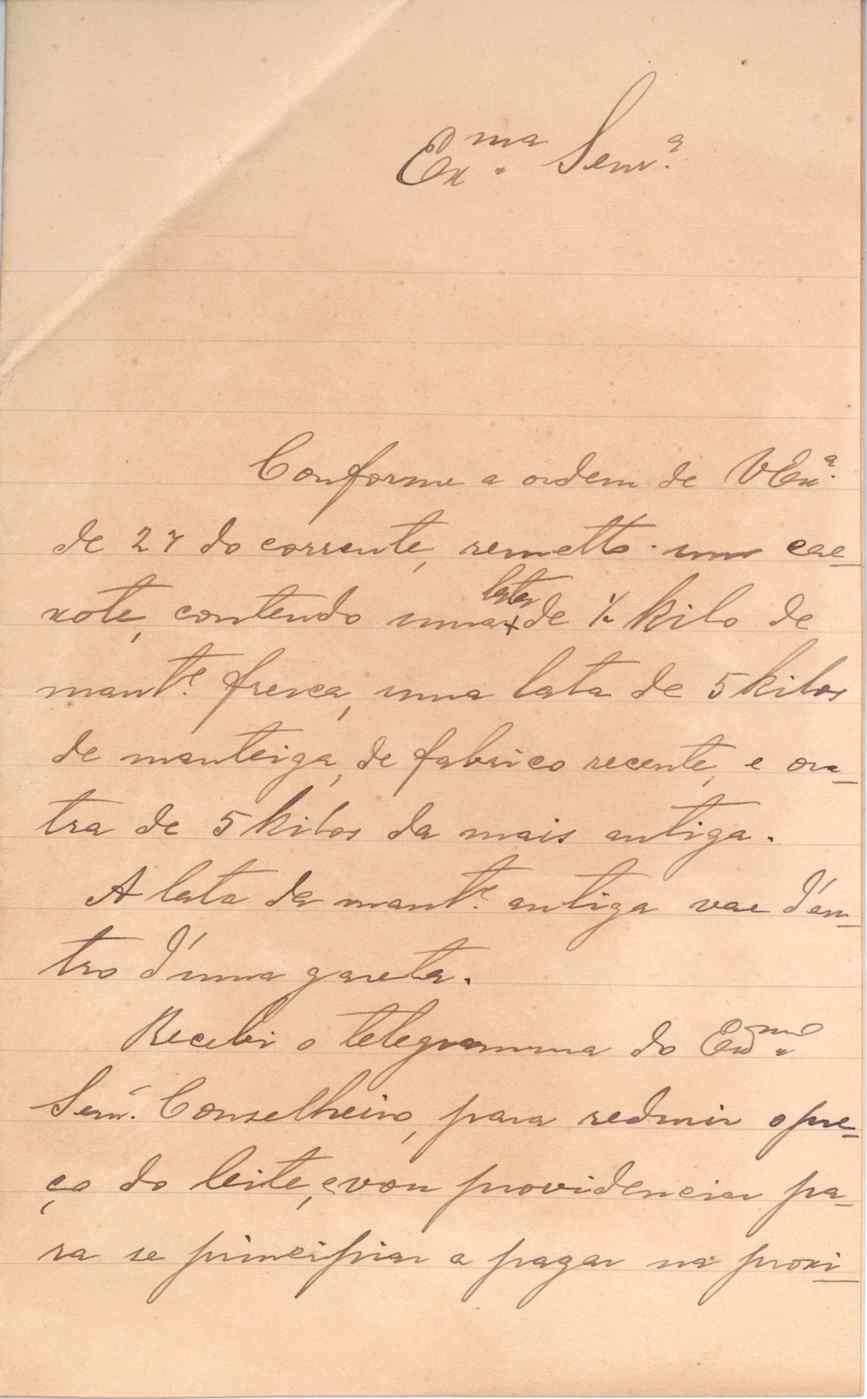 Ex.ma Senr.a
Conforme a ordem de V Ex.a
de 27 do corrente, remetto um cae-
xote, contendo uma latas de 1/2 kilo de
mant.e fresca, uma lata de 5 kilos
de manteiga, de fabrico recente, e ou-
tra de 5 kilos da mais antiga.
A lata da mant.e antiga vae d'en-
tro d'uma gaveta.
Recebi o telegramma do Ex.mo
Senr. Conselheiro, para reduzir o pre-
ço do leite, e vou providenciar pa-
ra se principiar a pagar na proxi-